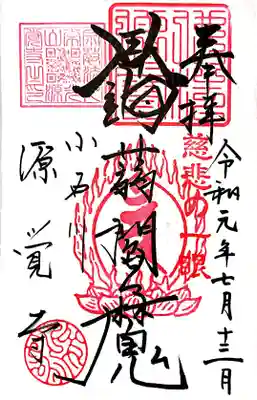 奉拝
慈悲の一眼
令和元年七月十三日
蒟蒻閻魔
小石川
源覚寺